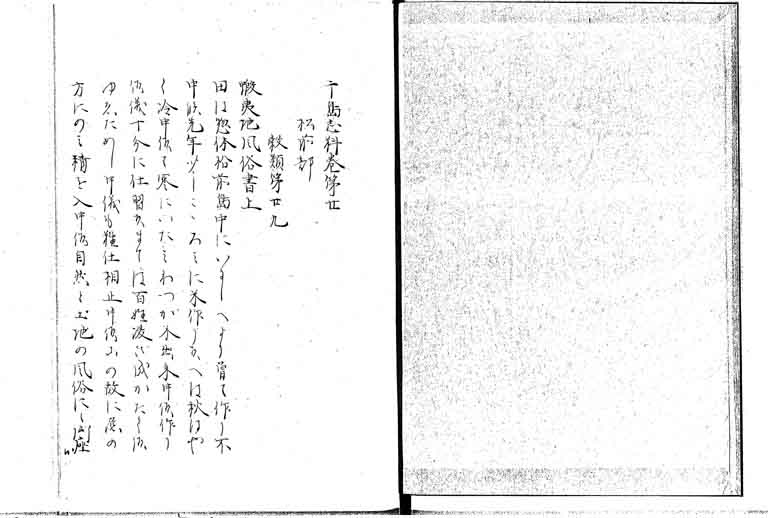 千島志料巻第廿
松前部
穀類第廿九
蝦夷地風俗書上
田は惣体松前島中にいにしへより曽て作り不
申候先年少しこゝろミに米作り候へは秋はや
く冷申候て寒にいたミわつか不出来申候作り
候儀十分に仕習候ましくは百姓渡世成かたく候
ゆへため申儀も難仕相止申候山の故に
方にのミ精を入申候自然と土地の風俗にて